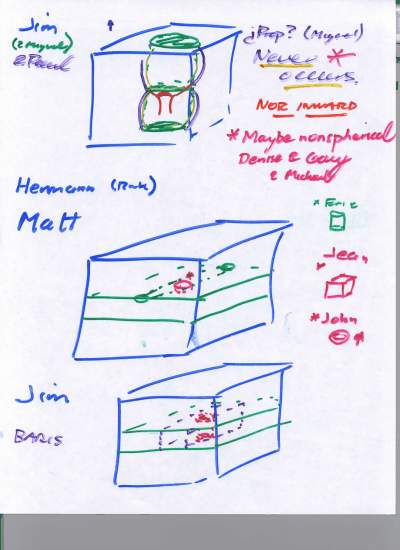 Jim
(2 Miguels)
¿Prop? (Miguel)
Never *
occurs
NOR INWARD
* Maybe nonspherical
Denise & Gary
& Michael
Hermann (Rink)
Matt
* Eric
Jean
* John
Jim
BARIS